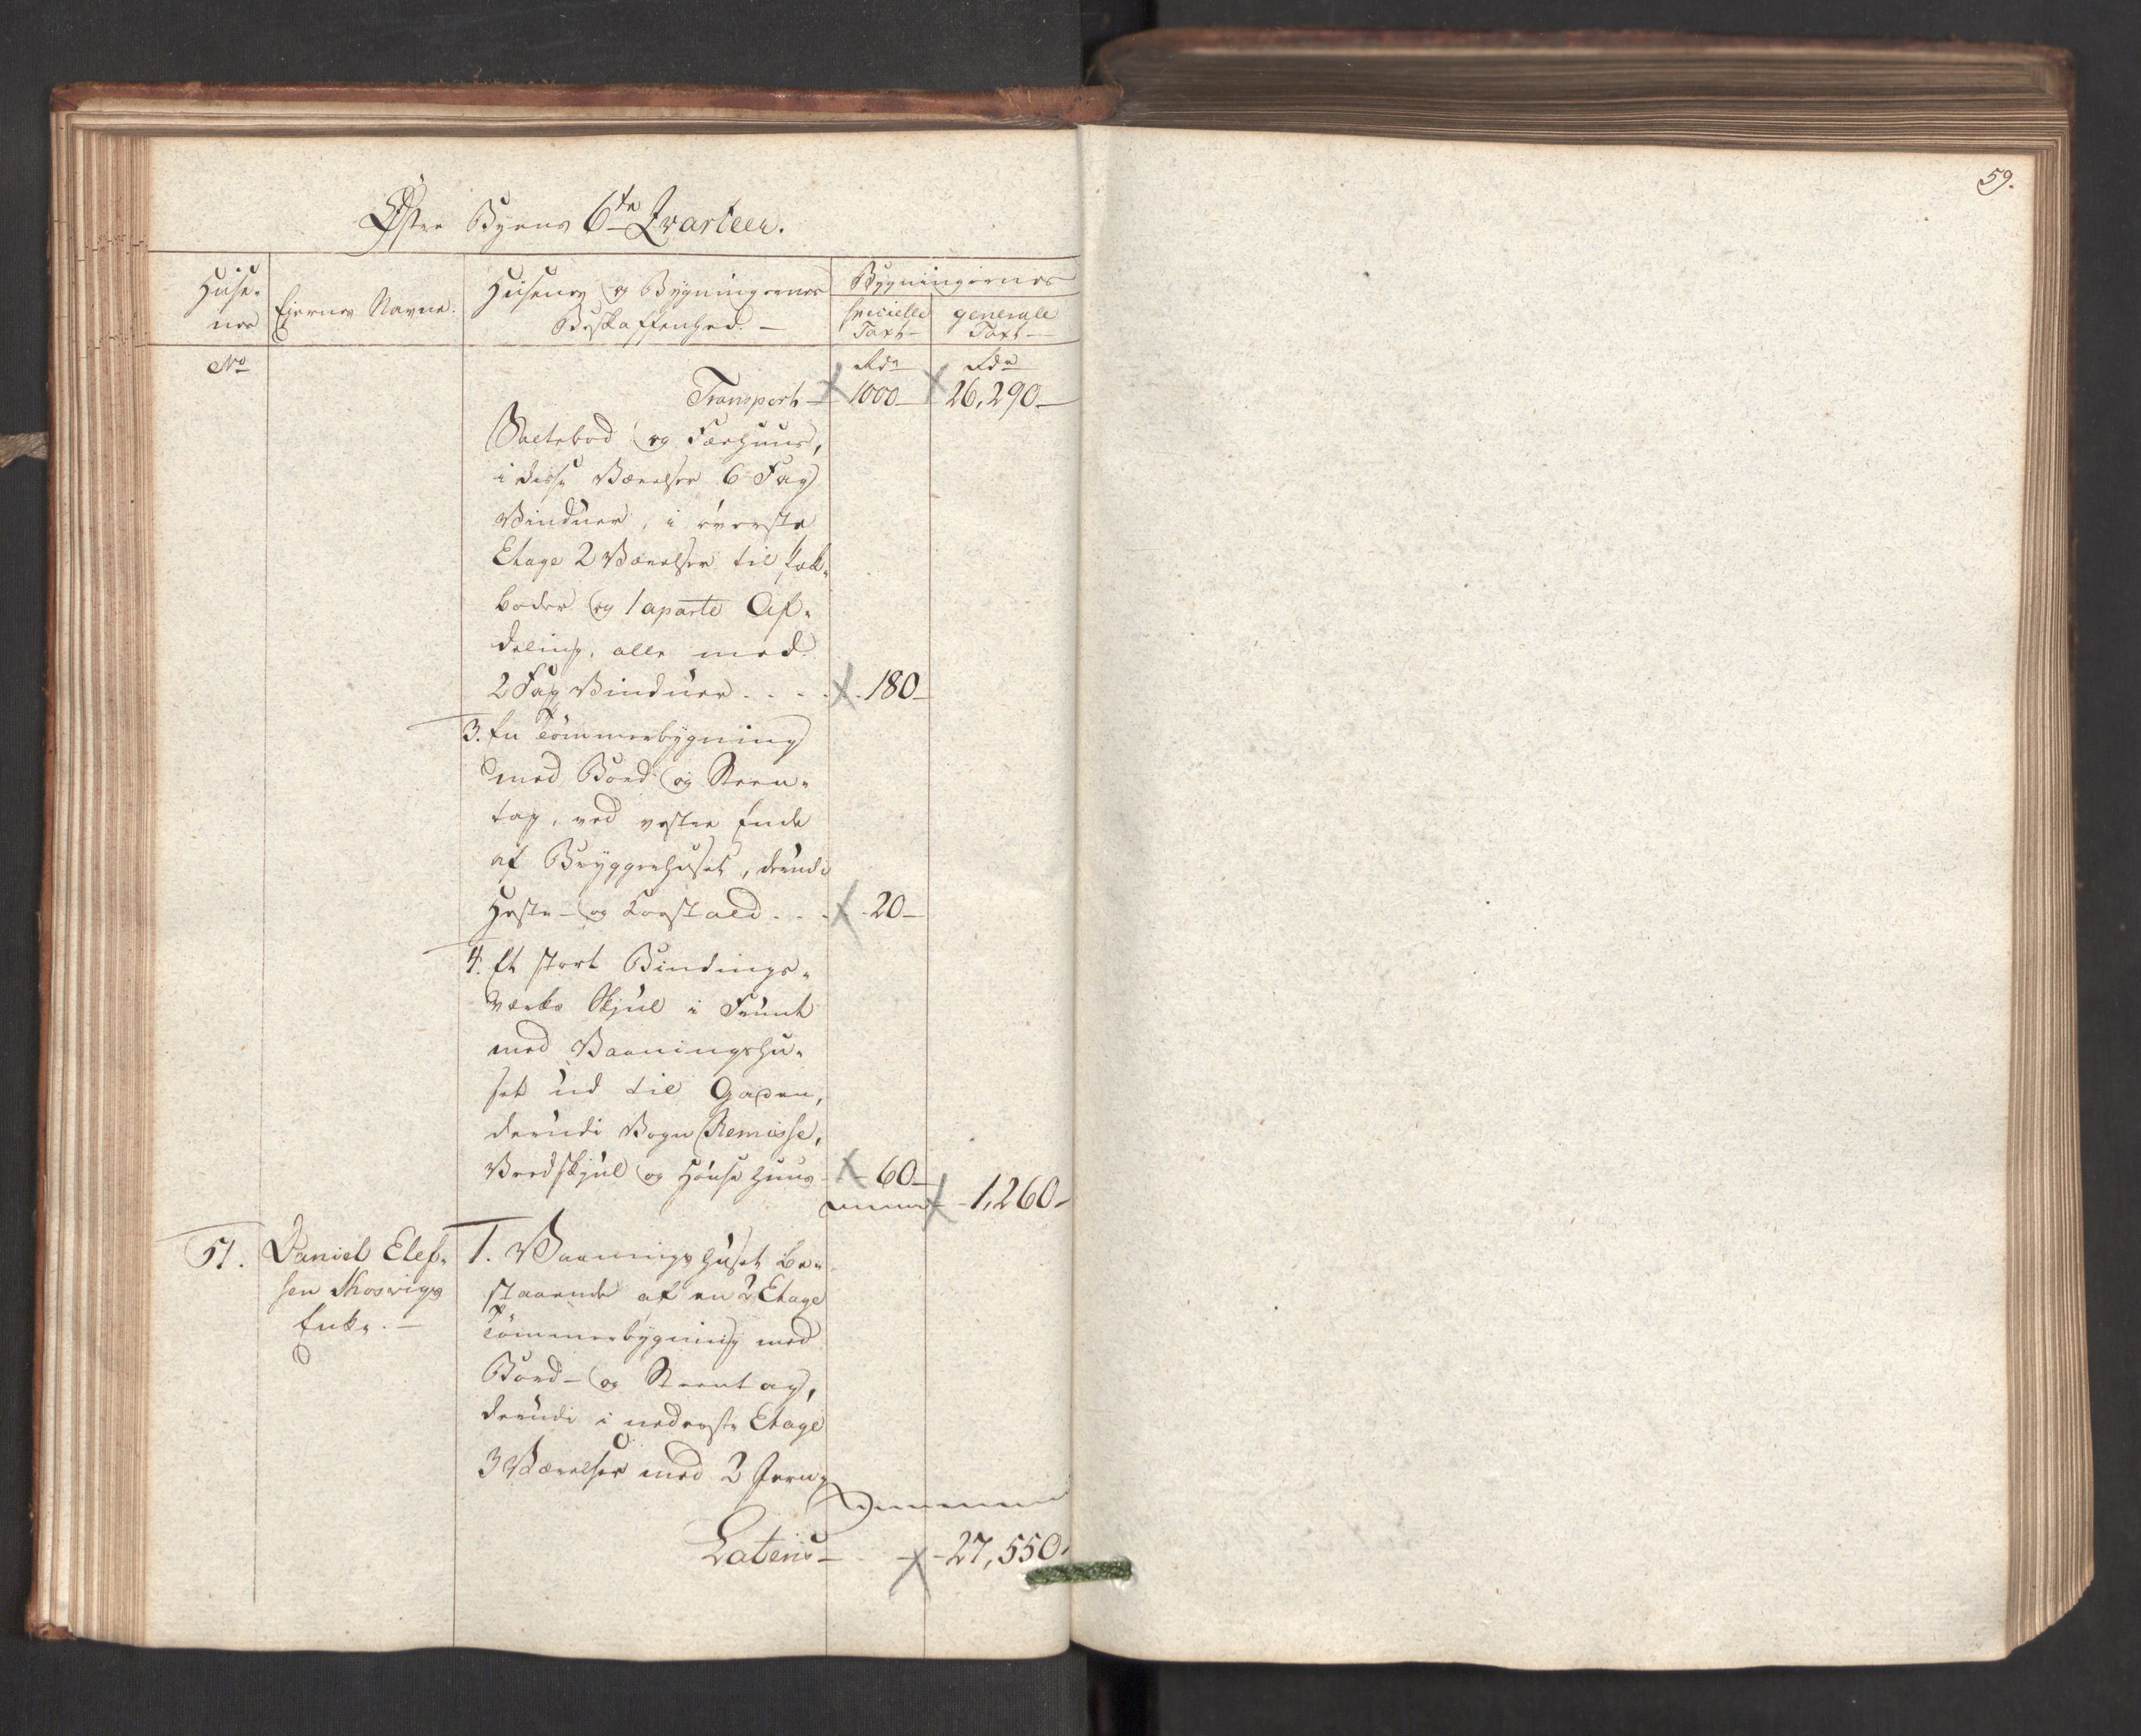 59.
Østre Byens 6te Qvarteer.
Huse-
nes
Eiernes Navne.
Husenes og Bygningernes
Beskaffenhed. —
Bygningernes
specielle
Taxt —
generale
Taxt —
No
Rdr
Rdr
Transport — 1000 — 26,290 —
Saltebod og Færhuus,
i disse Værelser 6 Fag
Vinduer, i øverste
Etage 2 Værelser til Pak-
boder og 1 aparte Af-
deling, alle med
2 Fag Vinduer . . . . 180 —
3. En Tömmerbygning
med Bord og Steen-
tag, ved vestre Ende
af Bryggerhuset, derudi
Heste- og Koestald . . . 20 —
4. Et stort Bindings-
værks Skjul i Frunt
med Vaaningshu-
set ud til Gaden,
derudi Vogn Remisse,
Vedskjul og Hönsehuus 60 —
1,260 —
51. Daniel Elef-
sen Thosvigs
Enke. —
1. Vaaningshuset be-
staaende af en 2 Etage
Tömmerbygning med
Bord- og Steentag,
derudi i nederste Etage
3 Værelser med 2 Jern-
Lateris — 27,550.